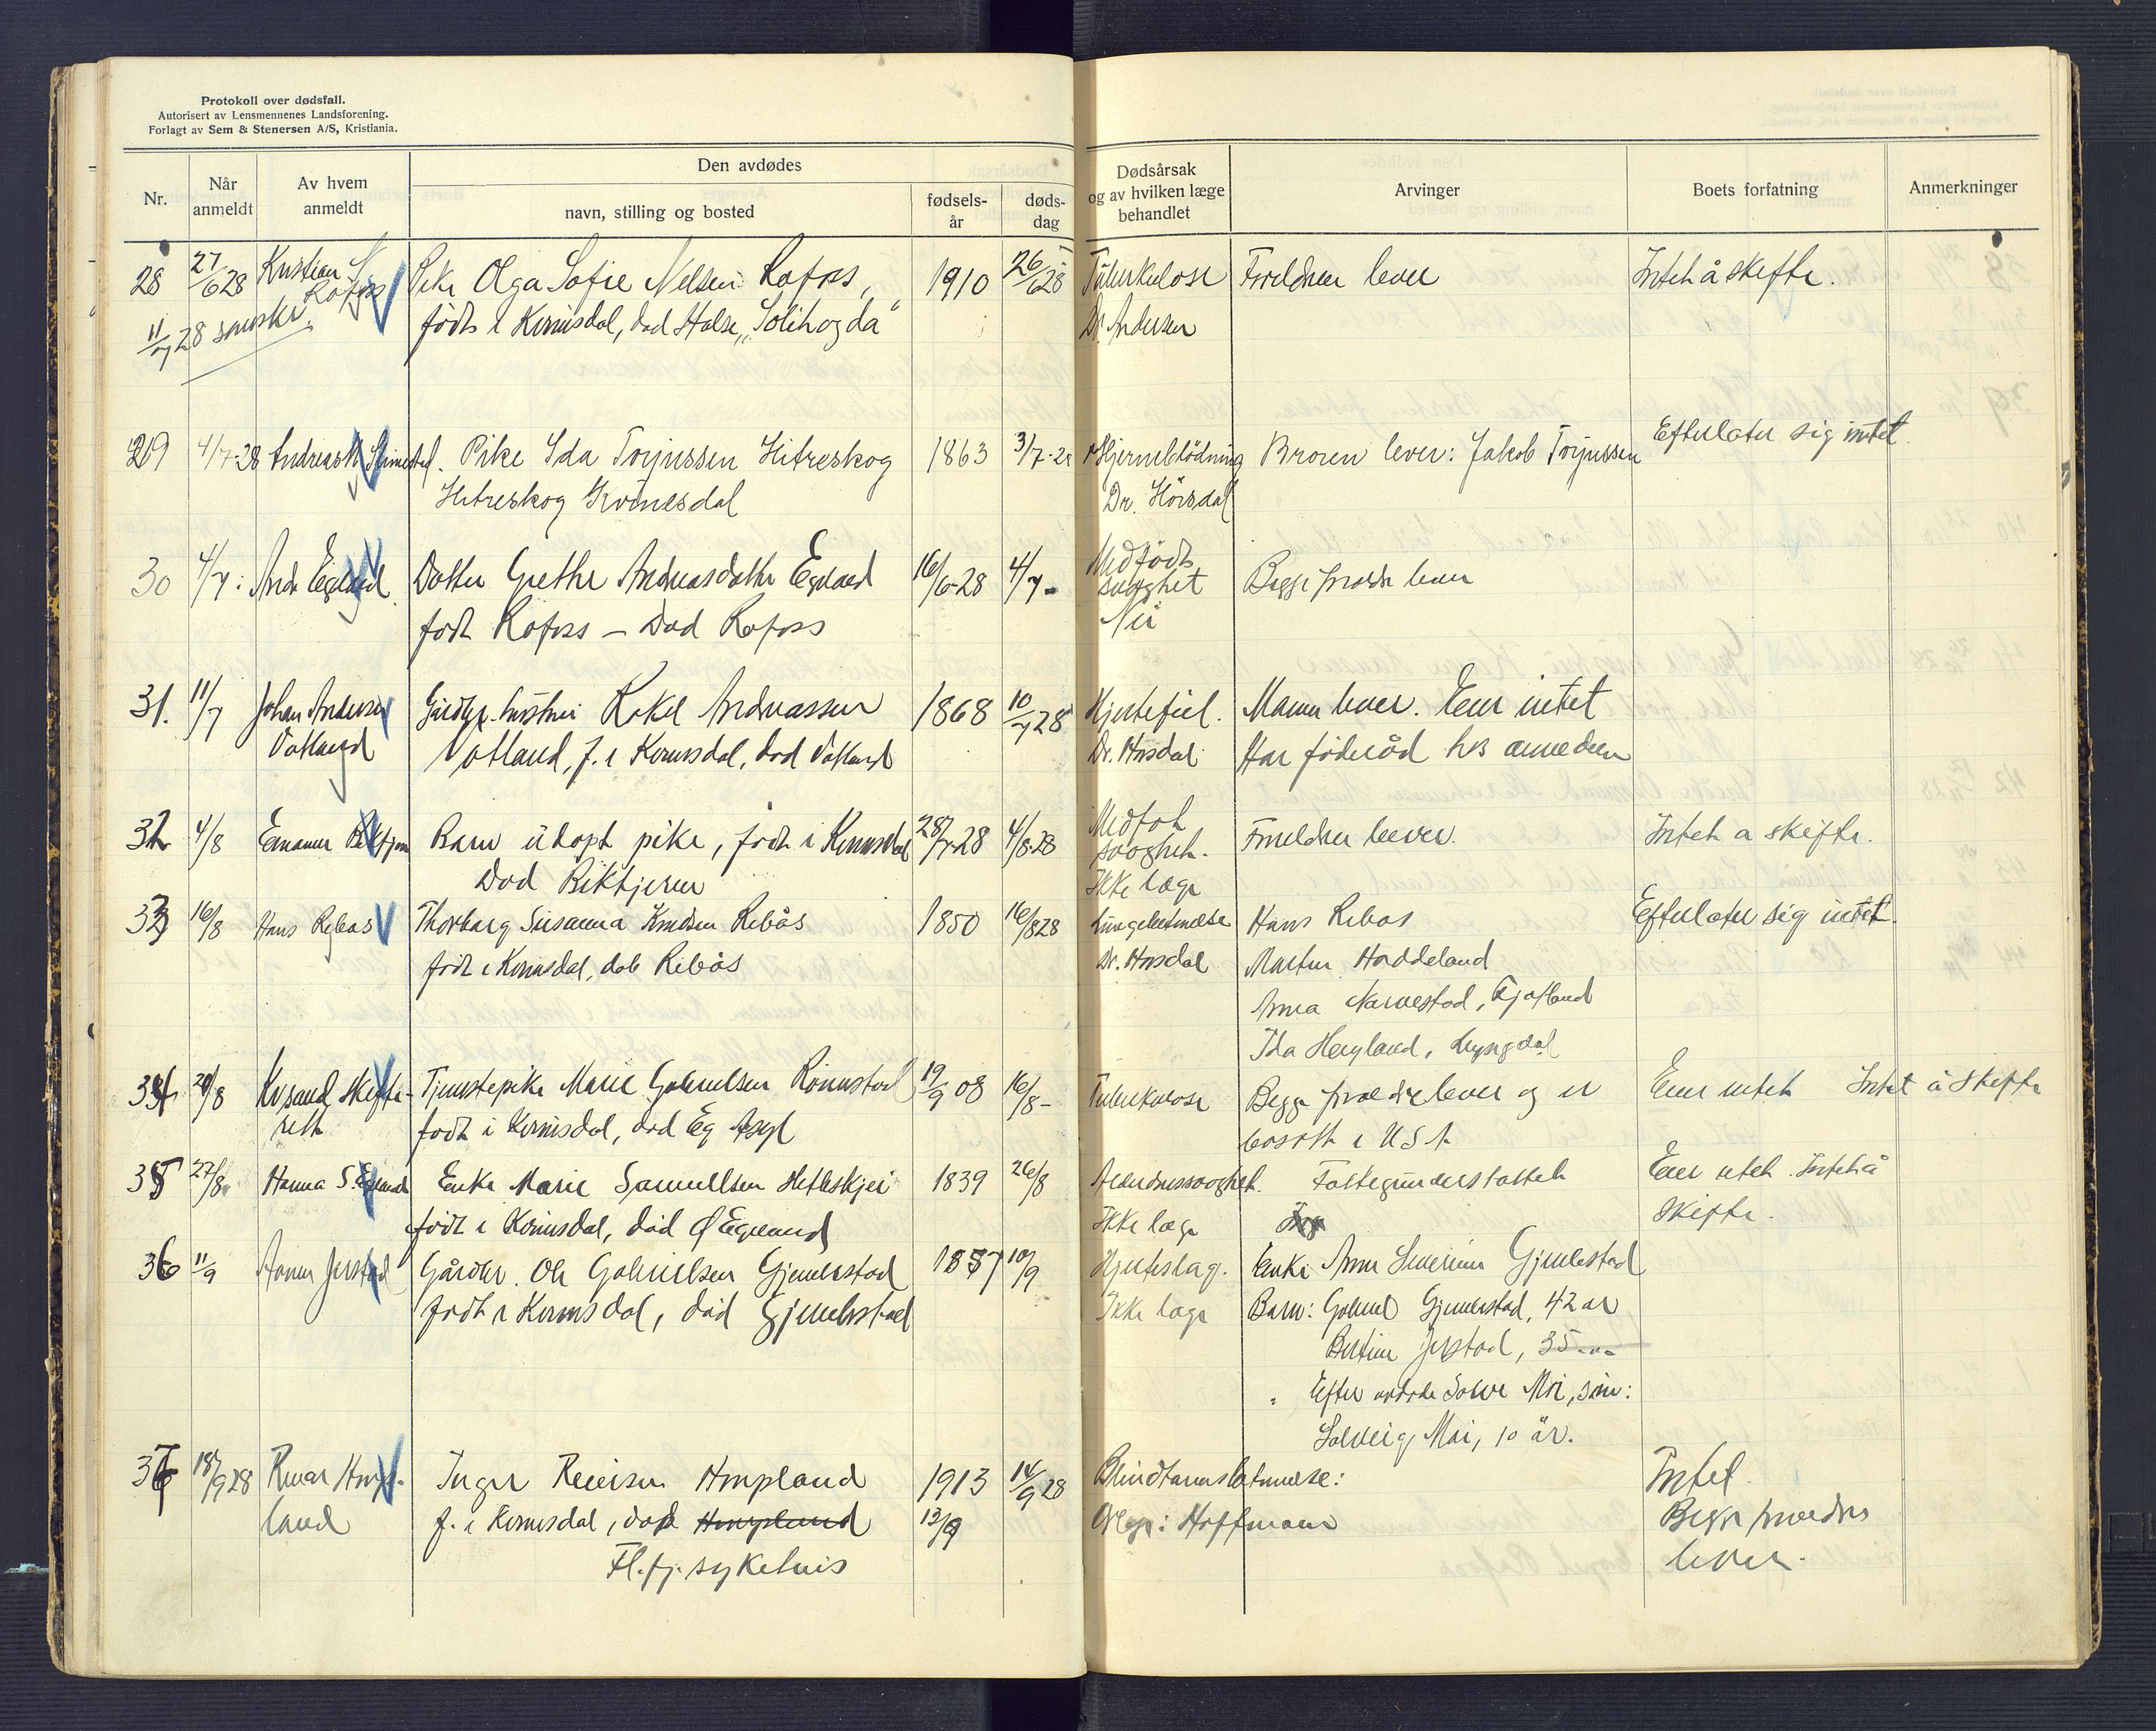 Protokoll over dødsfall.
Autorisert av Lensmennenes Landsforening.
Forlagt av Sem & Stenersen A/S, Kristiania.
Nr.
Når anmeldt
Av hvem anmeldt
Den avdødes
navn, stilling og bosted
fødsels-år
døds-dag
Dødsårsak og av hvilken læge behandlet
Arvinger
Boets forfatning
Anmerkninger
28 27/6 28 Kristian Rafoss Pike Olga Sofie Nelsen Rafoss, 1910 26/6 28 Tuberkulose Foreldrene lever Intet å skifte.
11/7 28 født i Kvinesdal, død Halse, „Solihogda" Dr. Andersen
29 4/7-28 Andreas Pike Ida Torjussen Hitreskog 1863 3/7-28 Hjerneblödning Broren lever: Jakob Torjussen Efterlater sig intet.
Hitreskog Kvinesdal Dr. Hörsdal
30 4/7 Andr. Egeland Datter Grethe Andreasdatter Egeland 16/6-28 4/7- Medfødt Begge foreldre lever
født Rafoss – Død Rafoss svaghet
Nei
31. 11/7 Johan Andersen Gårdbr. hustru Rakel Andreassen 1868 10/7 28 Hjertefeil. Mannen lever. Eier intet
Vatland Vatland, f. i Kvinesdal, død Vatland Dr. Hørsdal Har föderåd hos
32 4/8 Barn udøpt pike, født i Kvinesdal 28/7-28 4/8-28 Medføt Foreldrene lever. Intet a skifte.
Død svaghet.
Ikke læge
33 16/8 Hans Rebås Thorborg Susanna Knudsen Rebås 1850 16/8 28 Lungebetendelse Hans Rebås Efterlater sig intet.
født i Kvinesdal, død Rebås Dr. Hørsdal Martin Haddeland
Anna Narvestad, Fjotland
Ida Hægland, Lyngdal
34 20/8 Kr.sand skifte- Tjenstepike Marie Gabrielsen Rönnestad 19/9 08 16/8- Tuberkulose Begge foreldre lever og er Eier intet Intet å skifte
rett født i Kvinesdal, død Eg Asyl bosatt i U S A
35 27/8 Hanna S. Egeland Enke Marie Samuelsen Hetleskjei 1839 26/8 Alderdomssvaghet. Fattigunderstøttet Eier intet. Intet å
født i Kvinesdal, død Ø Egeland Ikke læge skifte.
36 11/9 Jerstad Gårdbr. Ole Gabrielsen Gjemlestad 1857 10/9 Hjerteslag. Enke Anne Severine Gjemlestad
født i Kvinesdal, død Gjemlestad Ikke læge Barn: Gabriel Gjemlestad, 42 år
Bertine Jerstad, 35 -"-
" Efter avdøde Moi, sön:
Solveig Moi, 10 år.
37 18/9 28 Reier Homp- Inger Reiersen Hompland 1913 14/9 28 Blindtarmsbetennelse: Intet.
land f. i Kvinesdal, død Hompland 13/9 Læge: Hoffmann Begge foreldre
Fl.fj. sykehus lever.